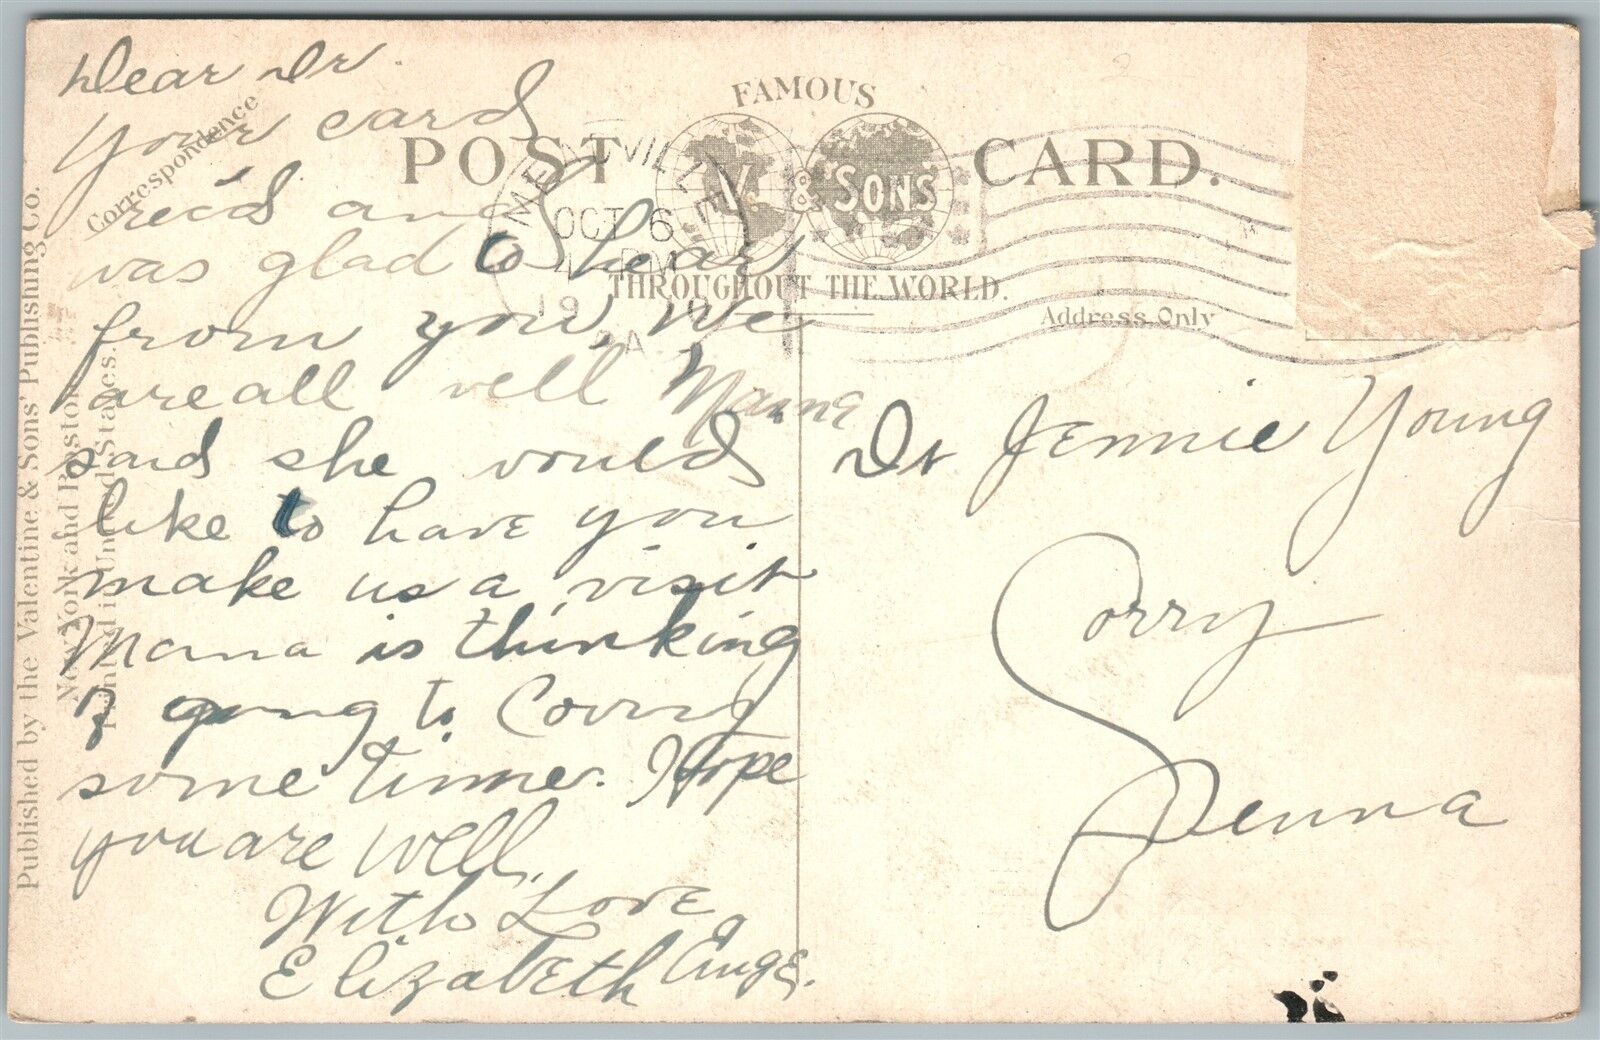 Dear Dr.
Your card
rec'd and
was glad to hear
from you, We
are all well Mama
said she would
like to have you
make us a visit
Mama is thinking
of going to Corry
some time. Hope
you are well.
With Love
Elizabeth
Correspondence
FAMOUS
POST CARD.
V. & SONS
THROUGHOUT THE WORLD.
Address Only
MEADVILLE
OCT 6
PM
1910
PA.
Dr Jennie Young
Corry
Penna
Published by the Valentine & Sons' Publishing Co.
New York and Boston.
Printed in United States.